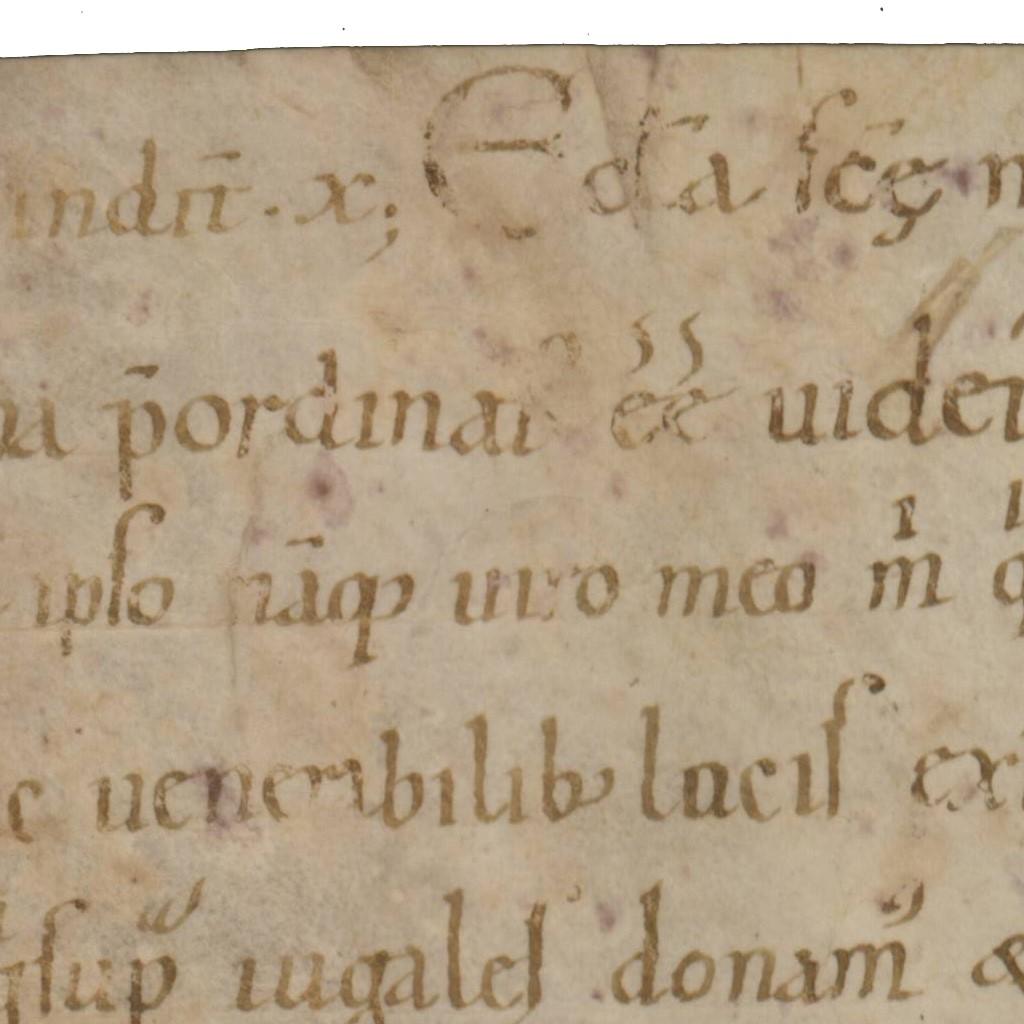 indic̄t . x; Ecl̄a sc̄ę m
p̄ordinai ee uide
ipso nāq; uiro meo m̄ q
uenerabilib; locis ex
qsup iugales donam &